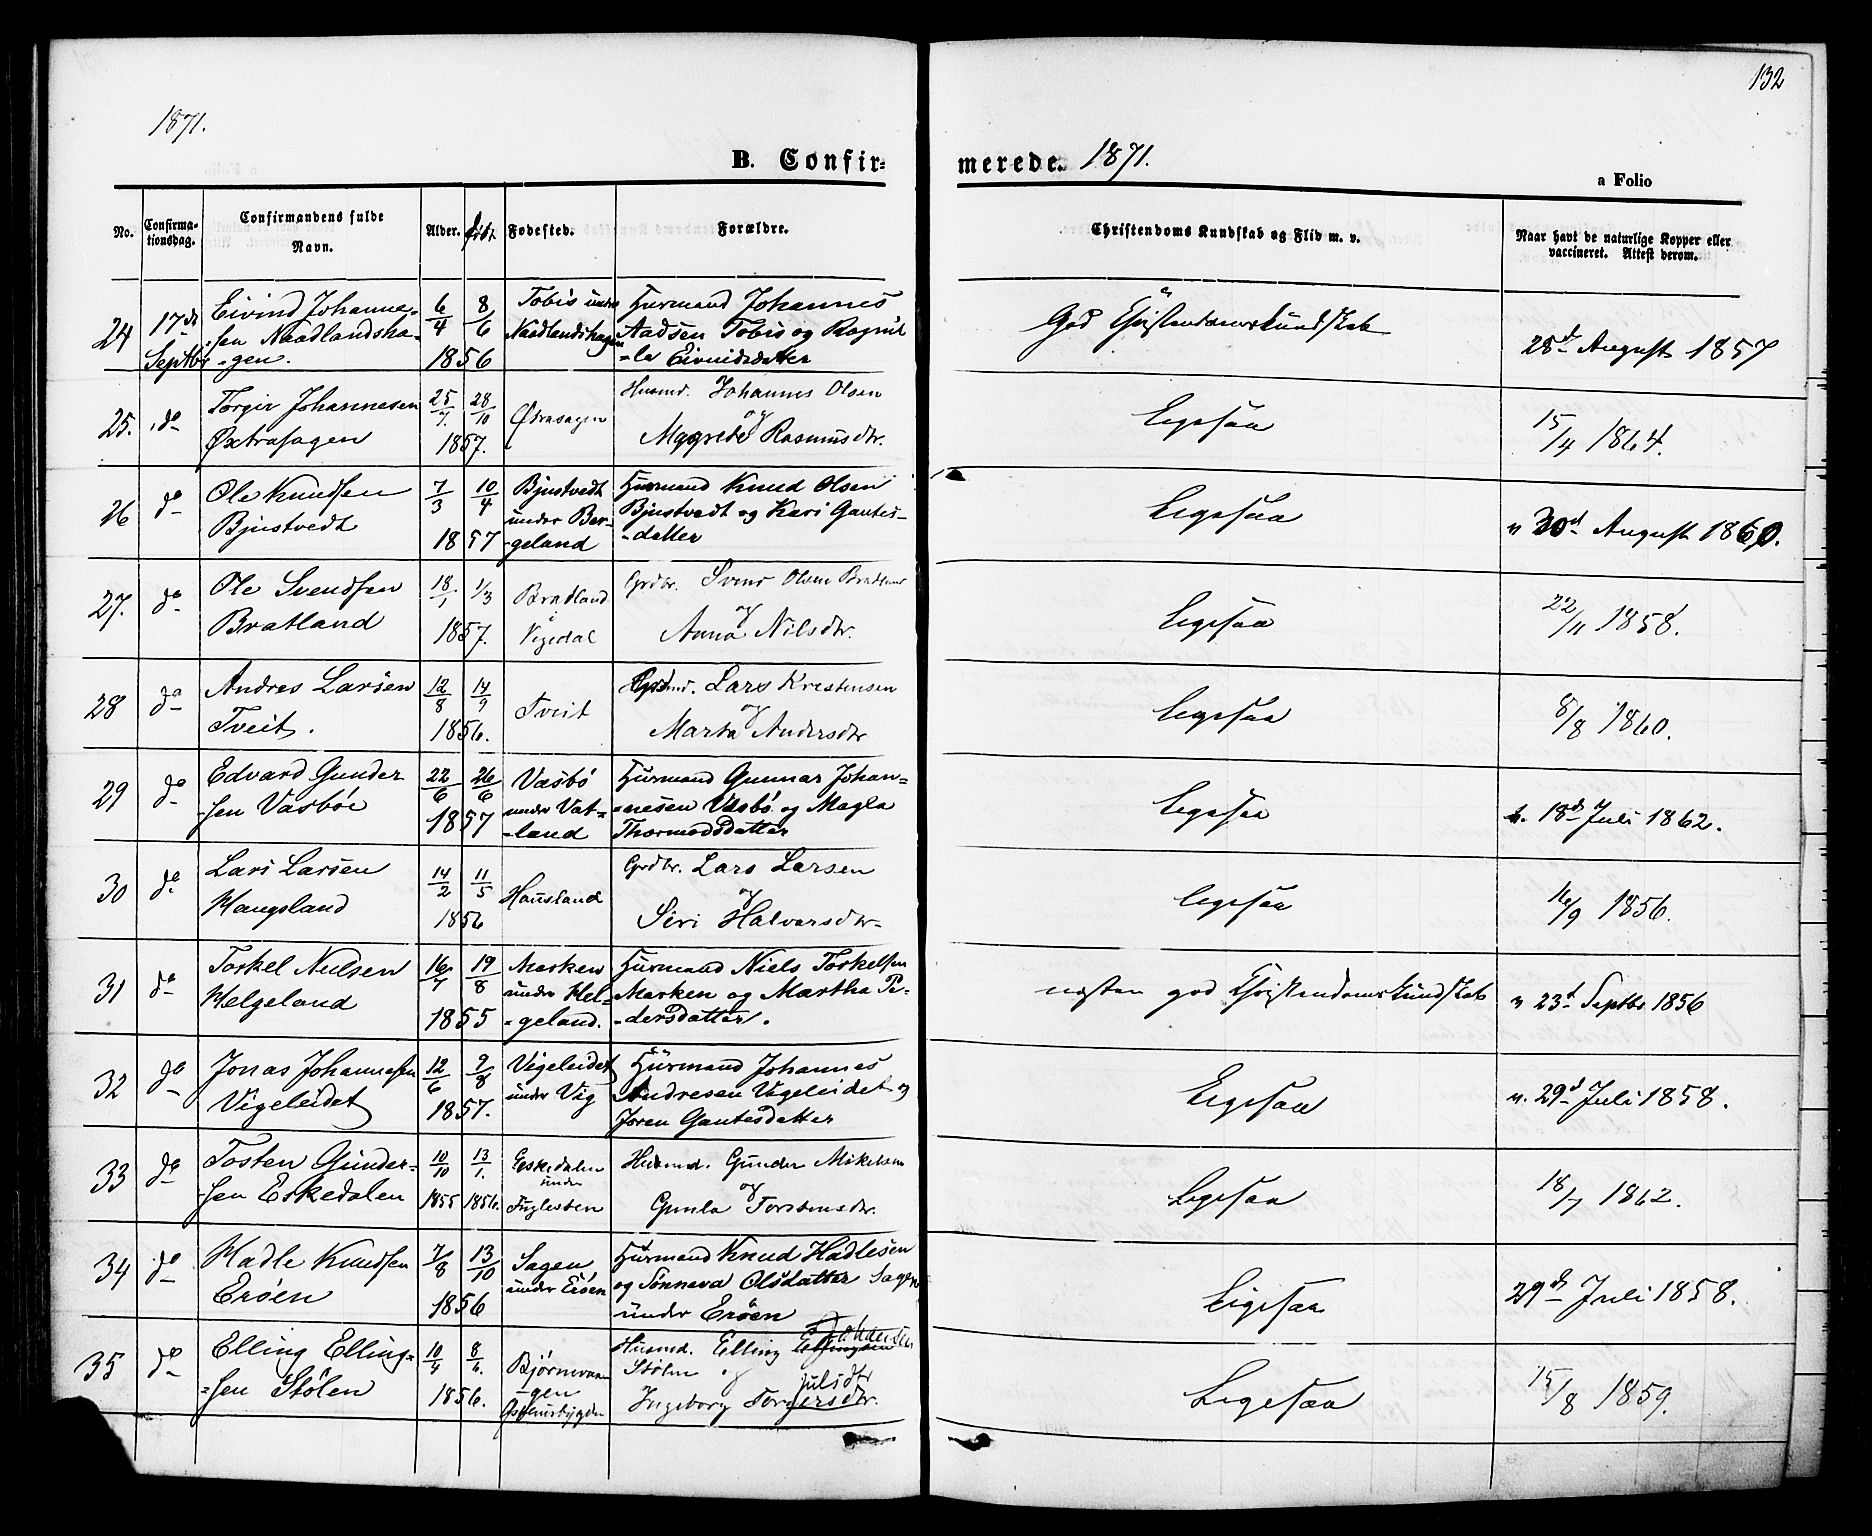 132
1871.
B. Confir-
merede. 1871.
a Folio
No.
Confirma-
tionsdag.
Confirmandens fulde
Navn.
Alder.
Føbt.
Fødested.
Forældre.
Christendoms Kundskab og Flid m. v.
Naar havt de naturlige Kopper eller
vaccineret. Attest derom.
24
17de
Septbr
Eivind Johanne-
-sen Naadlandsha-
-gen.
6/4
8/6
1856
Tobis under
Naadlandshagen
Husmand Johannes
Aadsen Tobis og Ragnil
-la Eivindsdatter
God Christendomskundskab
28de August 1857
25.
do
Torgir Johannesen
Øxtrasagen
25/7.
28/10
1857.
Øxtrasagen
Husmd. Johannes Olsen
og
Magrete Rasmusdtr.
Ligesaa
15/4 1864.
26
do
Ole Knudsen
Bjustvedt
7/3
10/4
1857
Bjustvedt
under Ber-
-geland
Husmand Knud Olsen
Bjustvedt og Kari Gautes-
-datter
Ligesaa
" 30d August 1860.
27.
do
Ole Svendsen
Bratland
18/1
1/3
1857.
Bratland
i
Vigedal
Grdbr. Svend Olsen Bratland
og
Anna Nilsdtr.
Ligesaa
22/11 1858.
28
do
Andres Larsen
Tveit.
12/8
14/9
1856.
Tveit
Lars Kristensen
og
Marta Andersdtr
Ligesaa
8/8 1860.
29
do
Edvard Gunder
-sen Vasbøe
22/6
26/6
1857
Vasbö
under Vat-
-land
Husmand Gunnar Johan-
-nesen Vasbö og Magla
Thormodsdatter
Ligesaa
18d Juli 1862.
30
do
Lars Larsen
Haugsland
14/2
11/5
1856
Hausland
Grdbr. Lars Larsen
og
Siri Halvarsdtr.
Ligesaa
16/9 1856.
31
do
Torkel Nielsen
Helgeland
16/7
19/8
1855
Marken
under Hel-
-geland.
Husmand Niels Torkelsen
Marken og Martha Pe-
-dersdatter.
næsten god Christendomskundskab
" 23d Septbr 1856
32
do
Jonas Johannesen
Vigeleidet
12/6
9/8
1857.
Vigeleidet
under Vig
Husmand Johannes
Andresen Vigeleidet og
Joren Gautesdatter
Ligesaa
". 29d Juli 1858.
33
do
Tosten Gunder-
-sen Eskedalen
10/10
13/1.
1855
1856.
Eskedalen
under
Fuglesten
Husmd. Gunder Mikelsen
og
Gunla Torstensdtr.
Ligesaa
18/7 1862.
34
do
Hadle Knudsen
Erøen
7/8
13/10
1856
Sagen
under Eröen
Husmand Knud Hadlesen
og Sønneva Olsdatter Sagen
under Eröen
Ligesaa
29de Juli 1858.
35
do
Elling Elling-
-sen Stölen
10/4
8/6.
1856.
Bjørnevaa-
-gen
Johansen
Husmd. Elling Ellingsen
Stølen og
Julsdtr
Ingeborg Torgersdtr.
Ligesaa
15/8 1859.